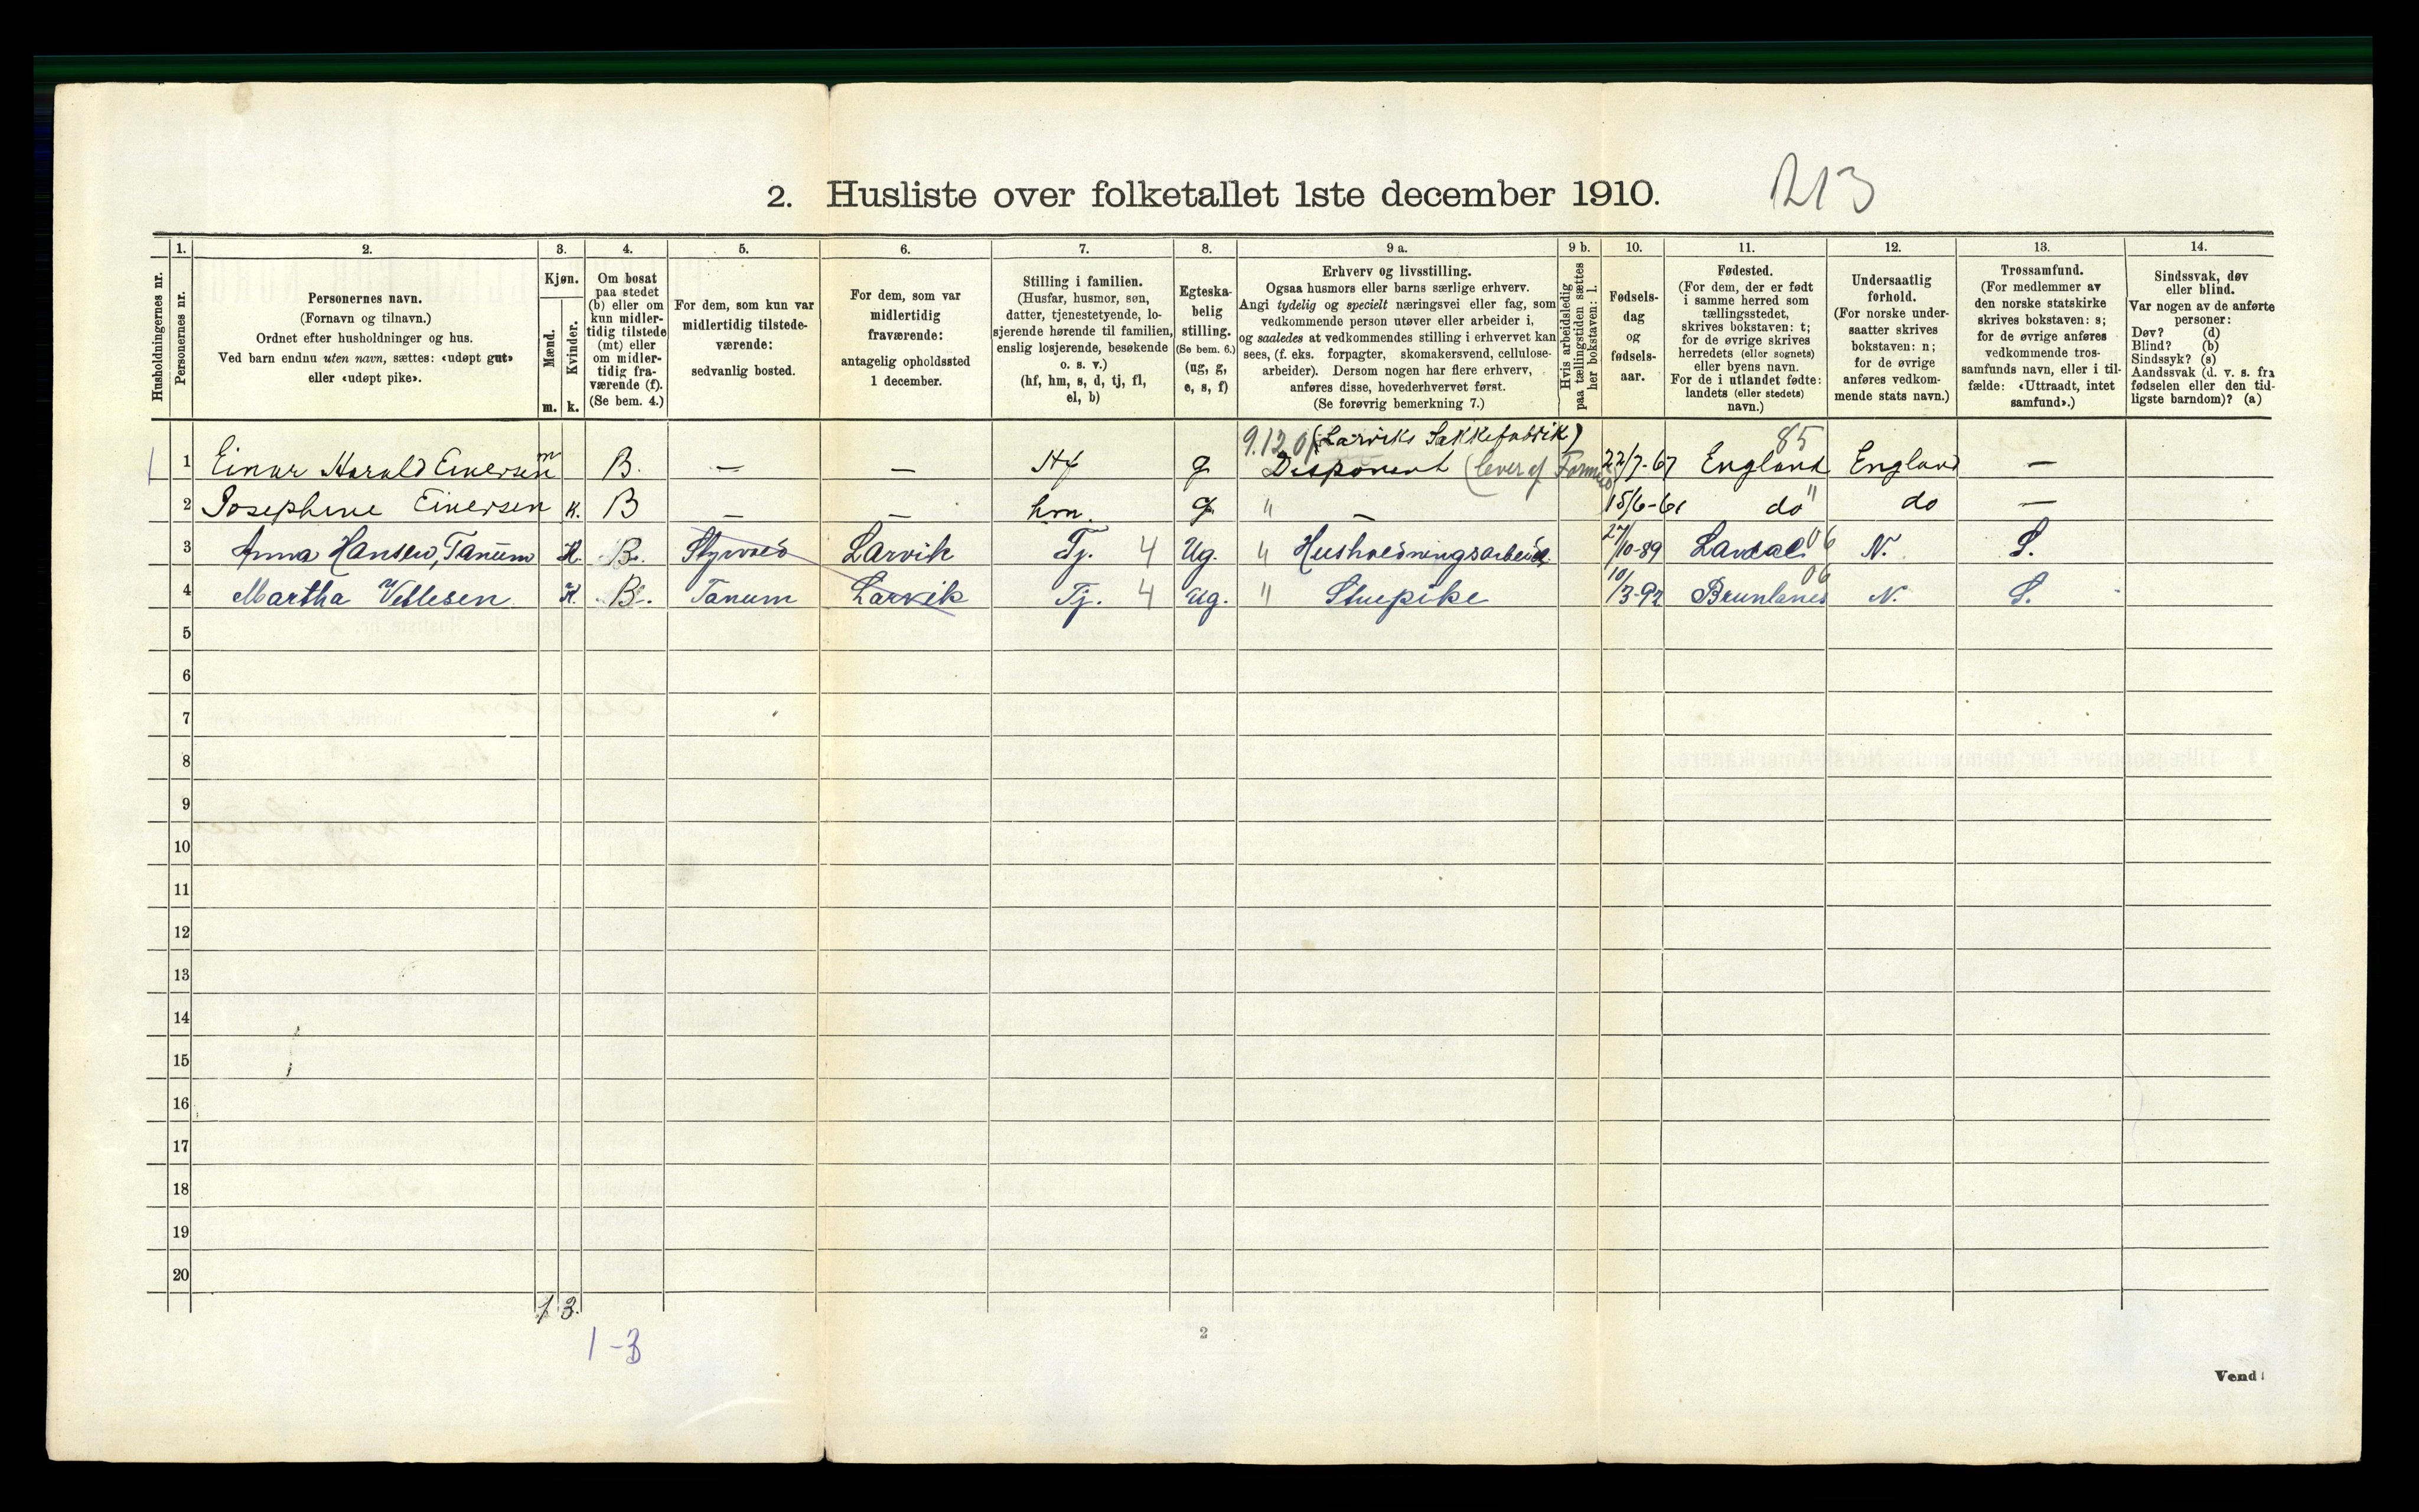 2. Husliste over folketallet 1ste december 1910.
213
Husholdningernes nr.
1.
Personernes nr.
2.
Personernes navn.
(Fornavn og tilnavn.)
Ordnet efter husholdninger og hus.
Ved barn endnu uten navn, sættes: «udøpt gut»
eller «udøpt pike».
3.
Kjøn.
Mænd.
Kvinder.
m. k.
4.
Om bosat
paa stedet
(b) eller om
kun midler-
tidig tilstede
(mt) eller
om midler-
tidig fra-
værende (f).
(Se bem. 4.)
5.
For dem, som kun var
midlertidig tilstede-
værende:
sedvanlig bosted.
6.
For dem, som var
midlertidig
fraværende:
antagelig opholdssted
1 december.
7.
Stilling i familien.
(Husfar, husmor, søn,
datter, tjenestetyende, lo-
sjerende hørende til familien,
enslig losjerende, besøkende
o. s. v.)
(hf, hm, s, d, tj, fl,
el, b)
8.
Egteska-
belig
stilling.
(Se bem. 6.)
(ug, g,
e, s, f)
9 a.
Erhverv og livsstilling.
Ogsaa husmors eller barns særlige erhverv.
Angi tydelig og specielt næringsvei eller fag, som
vedkommende person utøver eller arbeider i,
og saaledes at vedkommendes stilling i erhvervet kan
sees, (f. eks. forpagter, skomakersvend, cellulose-
arbeider). Dersom nogen har flere erhverv,
anføres disse, hovederhvervet først.
(Se forøvrig bemerkning 7.)
9 b.
Hvis arbeidsledig
paa tællingstiden sættes
her bokstaven: l.
10.
Fødsels-
dag
og
fødsels-
aar.
11.
Fødested.
(For dem, der er født
i samme herred som
tællingsstedet,
skrives bokstaven: t;
for de øvrige skrives
herredets (eller sognets)
eller byens navn.
For de i utlandet fødte:
landets (eller stedets)
navn.)
12.
Undersaatlig
forhold.
(For norske under-
saatter skrives
bokstaven: n;
for de øvrige
anføres vedkom-
mende stats navn.)
13.
Trossamfund.
(For medlemmer av
den norske statskirke
skrives bokstaven: s;
for de øvrige anføres
vedkommende tros-
samfunds navn, eller i til-
fælde: «Uttraadt, intet
samfund».)
14.
Sindssvak, døv
eller blind.
Var nogen av de anførte
personer:
Døv? (d)
Blind? (b)
Sindssyk? (s)
Aandssvak (d. v. s. fra
fødselen eller den tid-
ligste barndom)? (a)
9.12.0 (Larviks Sækkefabrik) 85
1 1 Einar Harald Einersen m B. — — Hf g Disponent (lever af Formue) 22/7-67 England England —
2 Josephine Einersen K. B — — hm g " — 15/6-61 do " do —
3 Anna Hansen, Tanum K. B. Styrvold Larvik Tj. 4 Ug. " Husholdningsarbeide 27/10-89 Lardal 06 N. S.
4 Martha Vettesen K. B. Tanum Larvik Tj. 4 ug. " Stuepike 10/3-92 Brunlanes 06 N. S.
5
6
7
8
9
10
11
12
13
14
15
16
17
18
19
20
1 3.
1-3
2
Vend!